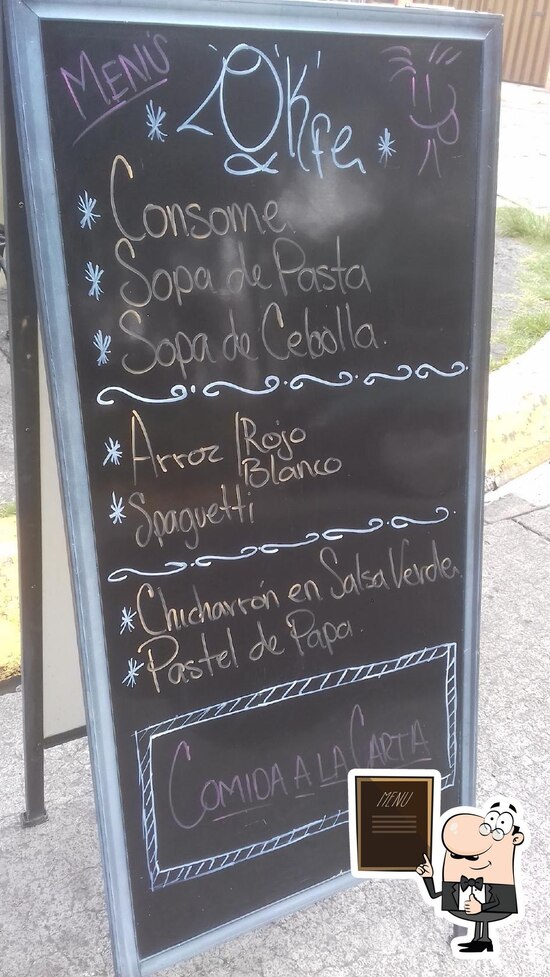 MENÚ
OKfe
Consome
Sopa de Pasta
Sopa de Cebolla.
Arroz / Rojo
Blanco
Spaguetti
Chicharrón en Salsa Verde.
Pastel de Papa.
COMIDA A LA CARTA
MENU